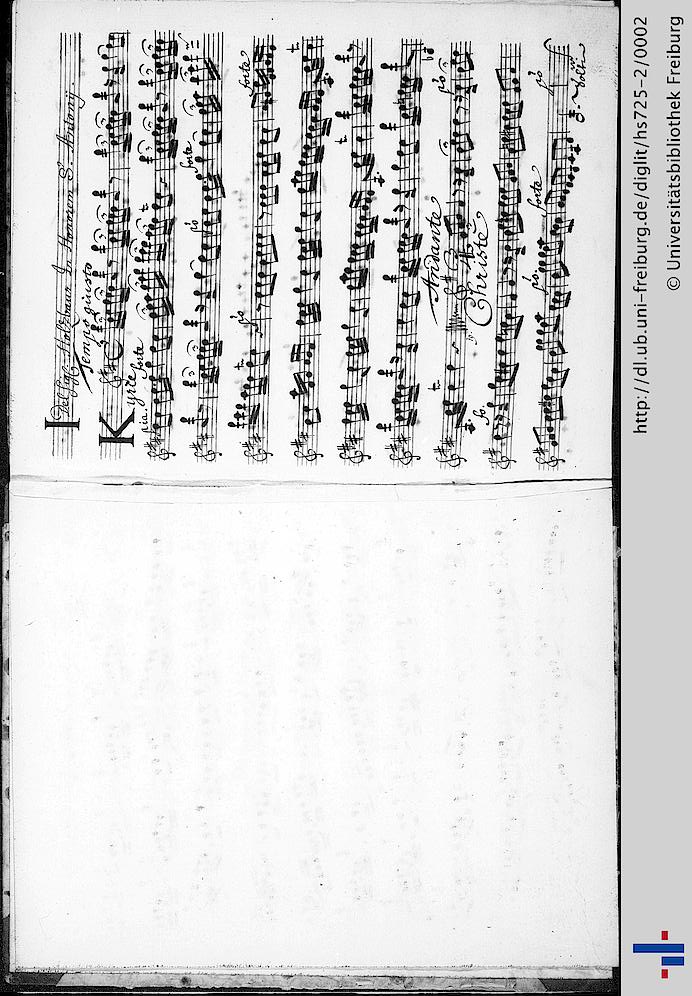 I
Del Sig. Holzbaur In Honorem St. Antonij
Tempo giusto
Kyrie
pia. forte
po forte
po forte
Andante
Christe
fo. po
po forte po
Volti
http://dl.ub.uni-freiburg.de/diglit/hs725-2/0002
© Universitätsbibliothek Freiburg